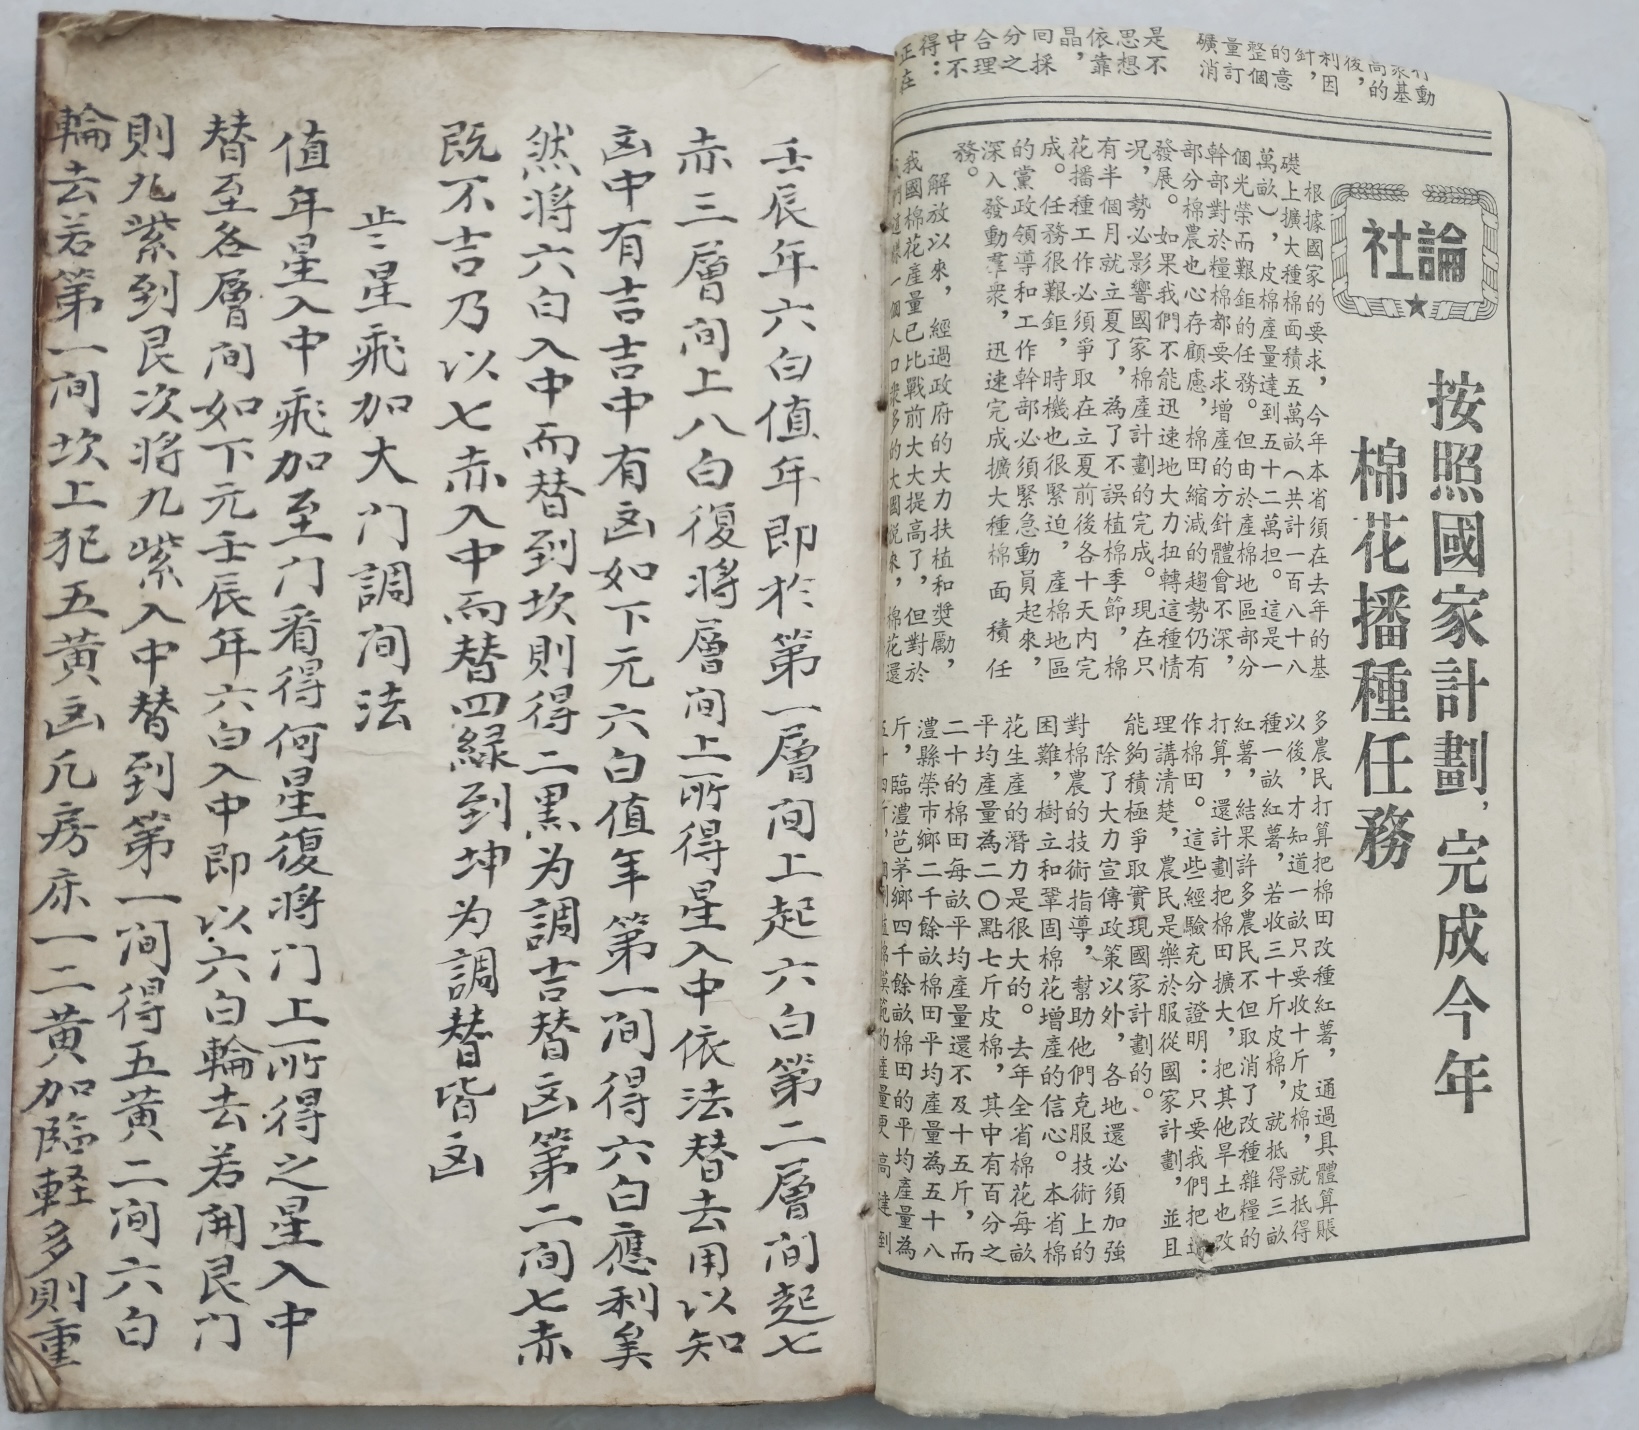 壬辰年六白值年即於第一層间上起六白第二層间起七
赤三層间上八白復将層间上所得星入中依法替去用以知
凶中有吉吉中有凶如下元六白值年第一间得六白應利矣
然将六白入中而替到坎則得二黑为調吉替凶第二间七赤
既不吉乃以七赤入中而替四緑到坤为調替皆凶
星飛加大门調间法
值年星入中飛加至门看得何星復将门上所得之星入中
替至各層间如下元壬辰年六白入中即以六白輪去若開艮门
則九紫到艮次将九紫入中替到第一间得五黄二间六白
輪去若第一间坎上犯五黄凶凡房床一二黄加臨軽多則重
動
衆基
高的
後，
利因
針，
的意
整個
量訂
礦消
是不
思想
依靠
晶，
同採
分之
合理
中不
得：
正在
社論
按照國家計劃，完成今年
棉花播種任務
根據國家的要求，今年本省須在去年的基
礎上擴大種棉面積五萬畝（共計一百八十八
萬畝），皮棉產量達到五十二萬担。這是一
個光榮而艱鉅的任務。但由於產棉地區部分
幹部對於糧棉都要求增產的方針體會不深，
部分棉農也心存顧慮，棉田縮減的趨勢仍有
發展。如果我們不能迅速地大力扭轉這種情
況，勢必影響國家棉產計劃的完成。現在只
有半個月就立夏了，為了不誤植棉季節，棉
花播種工作必須爭取在立夏前後各十天內完
成。任務很艱鉅，時機也很緊迫，產棉地區
的黨政領導和工作幹部必須緊急動員起來，
深入發動羣衆，迅速完成擴大種棉面積任
務。
解放以來，經過政府的大力扶植和獎勵，
我國棉花產量已比戰前大大提高了，但對於
我們這樣一個人口衆多的大國說來，棉花還
多農民打算把棉田改種紅薯，通過具體算賬
以後，才知道一畝只要收十斤皮棉，就抵得
種一畝紅薯，若收三十斤皮棉，就抵得三畝
紅薯，結果許多農民不但取消了改種雜糧的
打算，還計劃把棉田擴大，把其他旱土也改
作棉田。這些經驗充分證明：只要我們把道
理講清楚，農民是樂於服從國家計劃，並且
能夠積極爭取實現國家計劃的。
除了大力宣傳政策以外，各地還必須加強
對棉農的技術指導，幫助他們克服技術上的
困難，樹立和鞏固棉花增產的信心。本省棉
花生產的潛力是很大的。去年全省棉花每畝
平均產量為二〇點七斤皮棉，其中有百分之
二十的棉田每畝平均產量還不及十五斤，而
澧縣榮市鄉二千餘畝棉田平均產量為五十八
斤，臨澧芭茅鄉四千餘畝棉田的平均產量為
五十四斤，個別植棉模範的產量更高達到